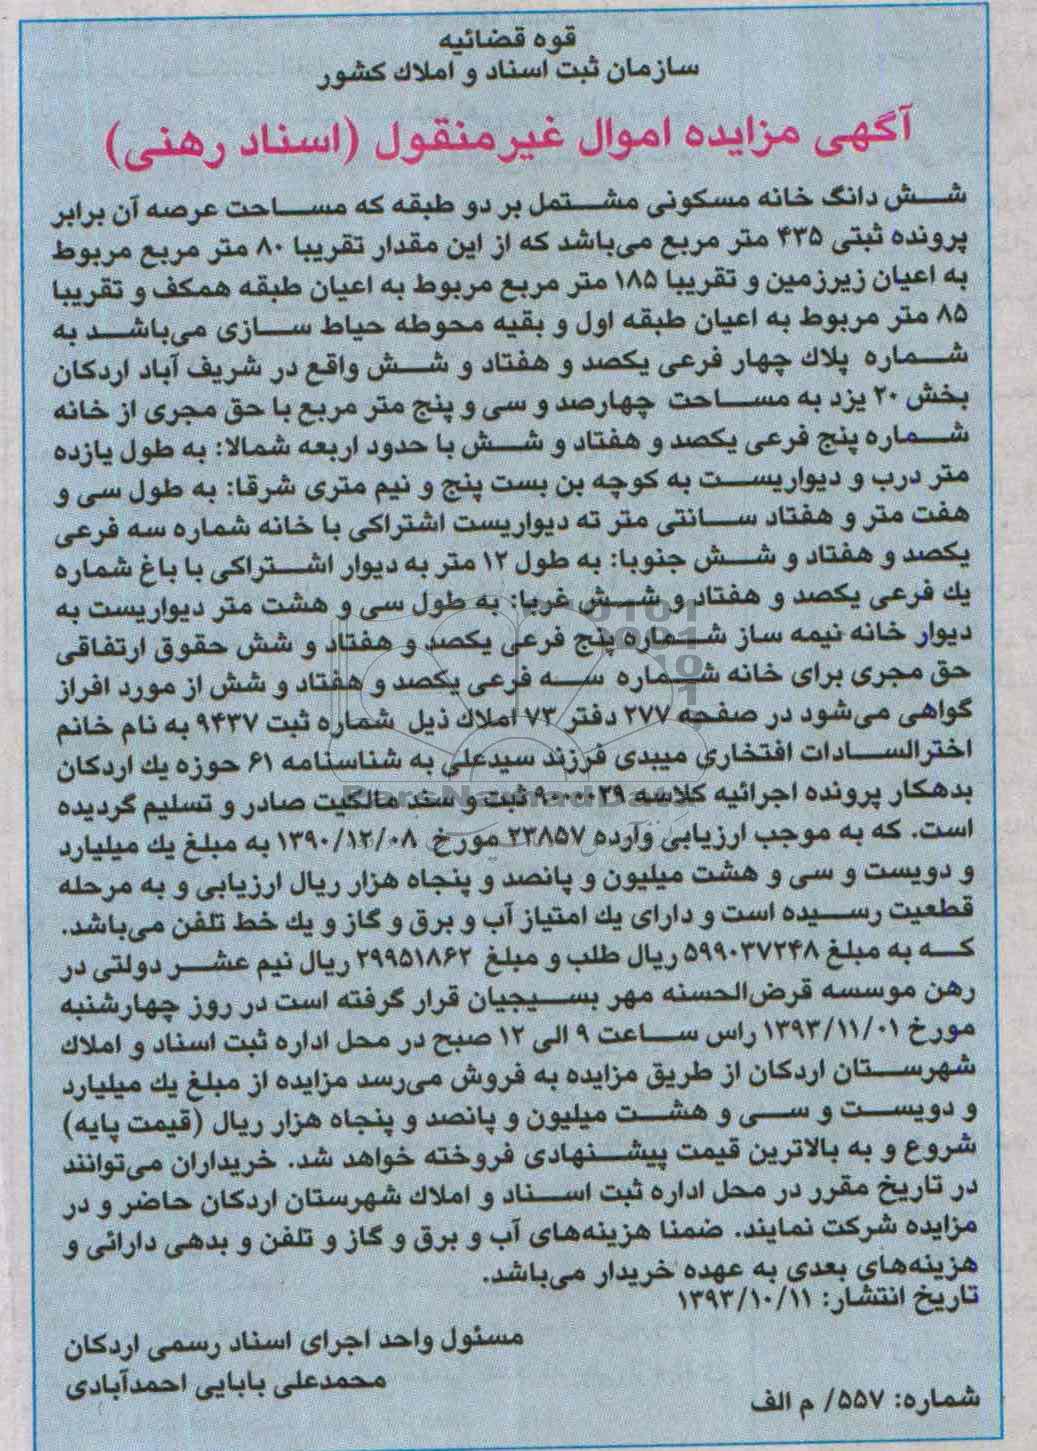 قوه قضائیه
سازمان ثبت اسناد و املاك كشور
آگهی مزایده اموال غیرمنقول (اسناد رهنی)
شش دانگ خانه مسكونی مشتمل بر دو طبقه كه مساحت عرصه آن برابر
پرونده ثبتی ۴۳۵ متر مربع می‌باشد كه از این مقدار تقریبا ۸۰ متر مربع مربوط
به اعیان زیرزمین و تقریبا ۱۸۵ متر مربع مربوط به اعیان طبقه همكف و تقریبا
۸۵ متر مربوط به اعیان طبقه اول و بقیه محوطه حیاط سازی می‌باشد به
شماره پلاك چهار فرعی یكصد و هفتاد و شش واقع در شریف آباد اردكان
بخش ۲۰ یزد به مساحت چهارصد و سی و پنج متر مربع با حق مجری از خانه
شماره پنج فرعی یكصد و هفتاد و شش با حدود اربعه شمالا: به طول یازده
متر درب و دیواریست به كوچه بن بست پنج و نیم متری شرقا: به طول سی و
هفت متر و هفتاد سانتی متر ته دیواریست اشتراكی با خانه شماره سه فرعی
یكصد و هفتاد و شش جنوبا: به طول ۱۲ متر به دیوار اشتراكی با باغ شماره
یك فرعی یكصد و هفتاد و شش غربا: به طول سی و هشت متر دیواریست به
دیوار خانه نیمه ساز شماره پنج فرعی یكصد و هفتاد و شش حقوق ارتفاقی
حق مجری برای خانه شماره سه فرعی یكصد و هفتاد و شش از مورد افراز
گواهی می‌شود در صفحه ۲۷۷ دفتر ۷۳ املاك ذیل شماره ثبت ۹۴۳۷ به نام خانم
اخترالسادات افتخاری میبدی فرزند سیدعلی به شناسنامه ۶۱ حوزه یك اردكان
بدهكار پرونده اجرائیه كلاسه ۹۰۰۰۰۲۹ ثبت و سند مالكیت صادر و تسلیم گردیده
است. كه به موجب ارزیابی وارده ۲۳۸۵۷ مورخ ۱۳۹۰/۱۲/۰۸ به مبلغ یك میلیارد
و دویست و سی و هشت میلیون و پانصد و پنجاه هزار ریال ارزیابی و به مرحله
قطعیت رسیده است و دارای یك امتیاز آب و برق و گاز و یك خط تلفن می‌باشد.
كه به مبلغ ۵۹۹۰۳۷۲۴۸ ریال طلب و مبلغ ۲۹۹۵۱۸۶۲ ریال نیم عشر دولتی در
رهن موسسه قرض‌الحسنه مهر بسیجیان قرار گرفته است در روز چهارشنبه
مورخ ۱۳۹۳/۱۱/۰۱ راس ساعت ۹ الی ۱۲ صبح در محل اداره ثبت اسناد و املاك
شهرستان اردكان از طریق مزایده به فروش می‌رسد مزایده از مبلغ یك میلیارد
و دویست و سی و هشت میلیون و پانصد و پنجاه هزار ریال (قیمت پایه)
شروع و به بالاترین قیمت پیشنهادی فروخته خواهد شد. خریداران می‌توانند
در تاریخ مقرر در محل اداره ثبت اسناد و املاك شهرستان اردكان حاضر و در
مزایده شركت نمایند. ضمنا هزینه‌های آب و برق و گاز و تلفن و بدهی دارائی و
هزینه‌های بعدی به عهده خریدار می‌باشد.
تاریخ انتشار: ۱۳۹۳/۱۰/۱۱
مسئول واحد اجرای اسناد رسمی اردكان
محمدعلی بابایی احمدآبادی
شماره: ۵۵۷/ م الف